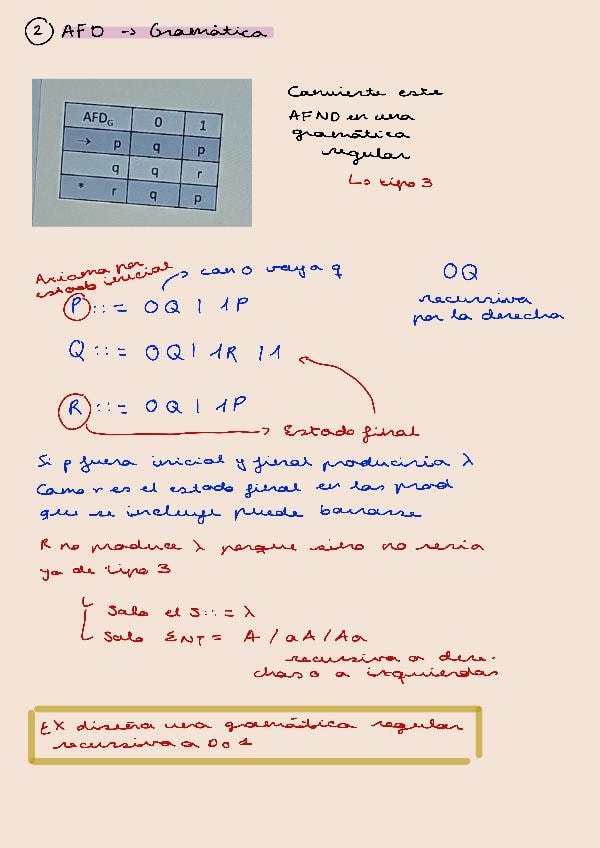 2 AFD -> Gramática
AFDG 0 1
→ p q p
q q r
* r q p
Convierte este
AFND en una
gramática
regular
↳ tipo 3
Axioma por
estado inicial
→ con 0 vaya q
0Q
recursiva
por la derecha
P ::= 0Q | 1P
Q ::= 0Q | 1R | 1
R ::= 0Q | 1P
→ Estado final
Si p fuera inicial y final produciría λ
Como r es el estado final en las prod
que se incluye puede borrarse
R no produce λ porque sino no sería
ya de tipo 3
Solo el S::= λ
Solo ENT = A / aA / Aa
recursiva a dere-
chas o a izquierdas
EX diseña una gramática regular
recursiva a D o I